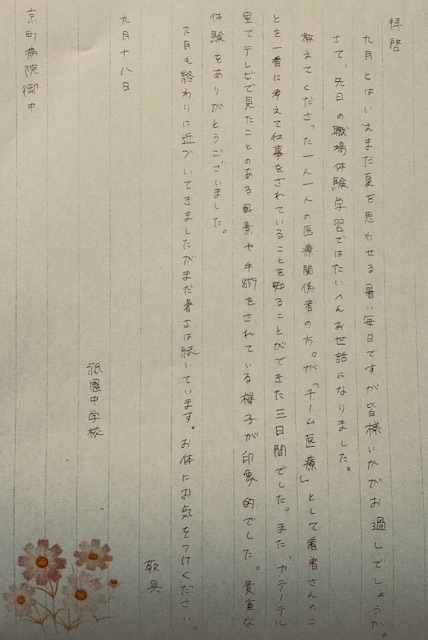 拝啓
九月とはいえまだ夏を思わせる暑い毎日ですが皆様いかがお過しでしょうか。
さて、先日の職場体験学習ではたいへんお世話になりました。
教えてくださった一人一人の医療関係者の方々が「チーム医療」として患者さんのこ
とを一番に考えて仕事をされていることを知ることができた三日間でした。また、カテーテル
室でテレビで見たことのある風景や手術をされている様子が印象的でした。貴重な
体験をありがとうございました。
九月も終わりに近づいてきましたがまだ暑さは続いています。お体にお気をつけください。
敬具
九月十八日
祇園中学校
京町病院御中